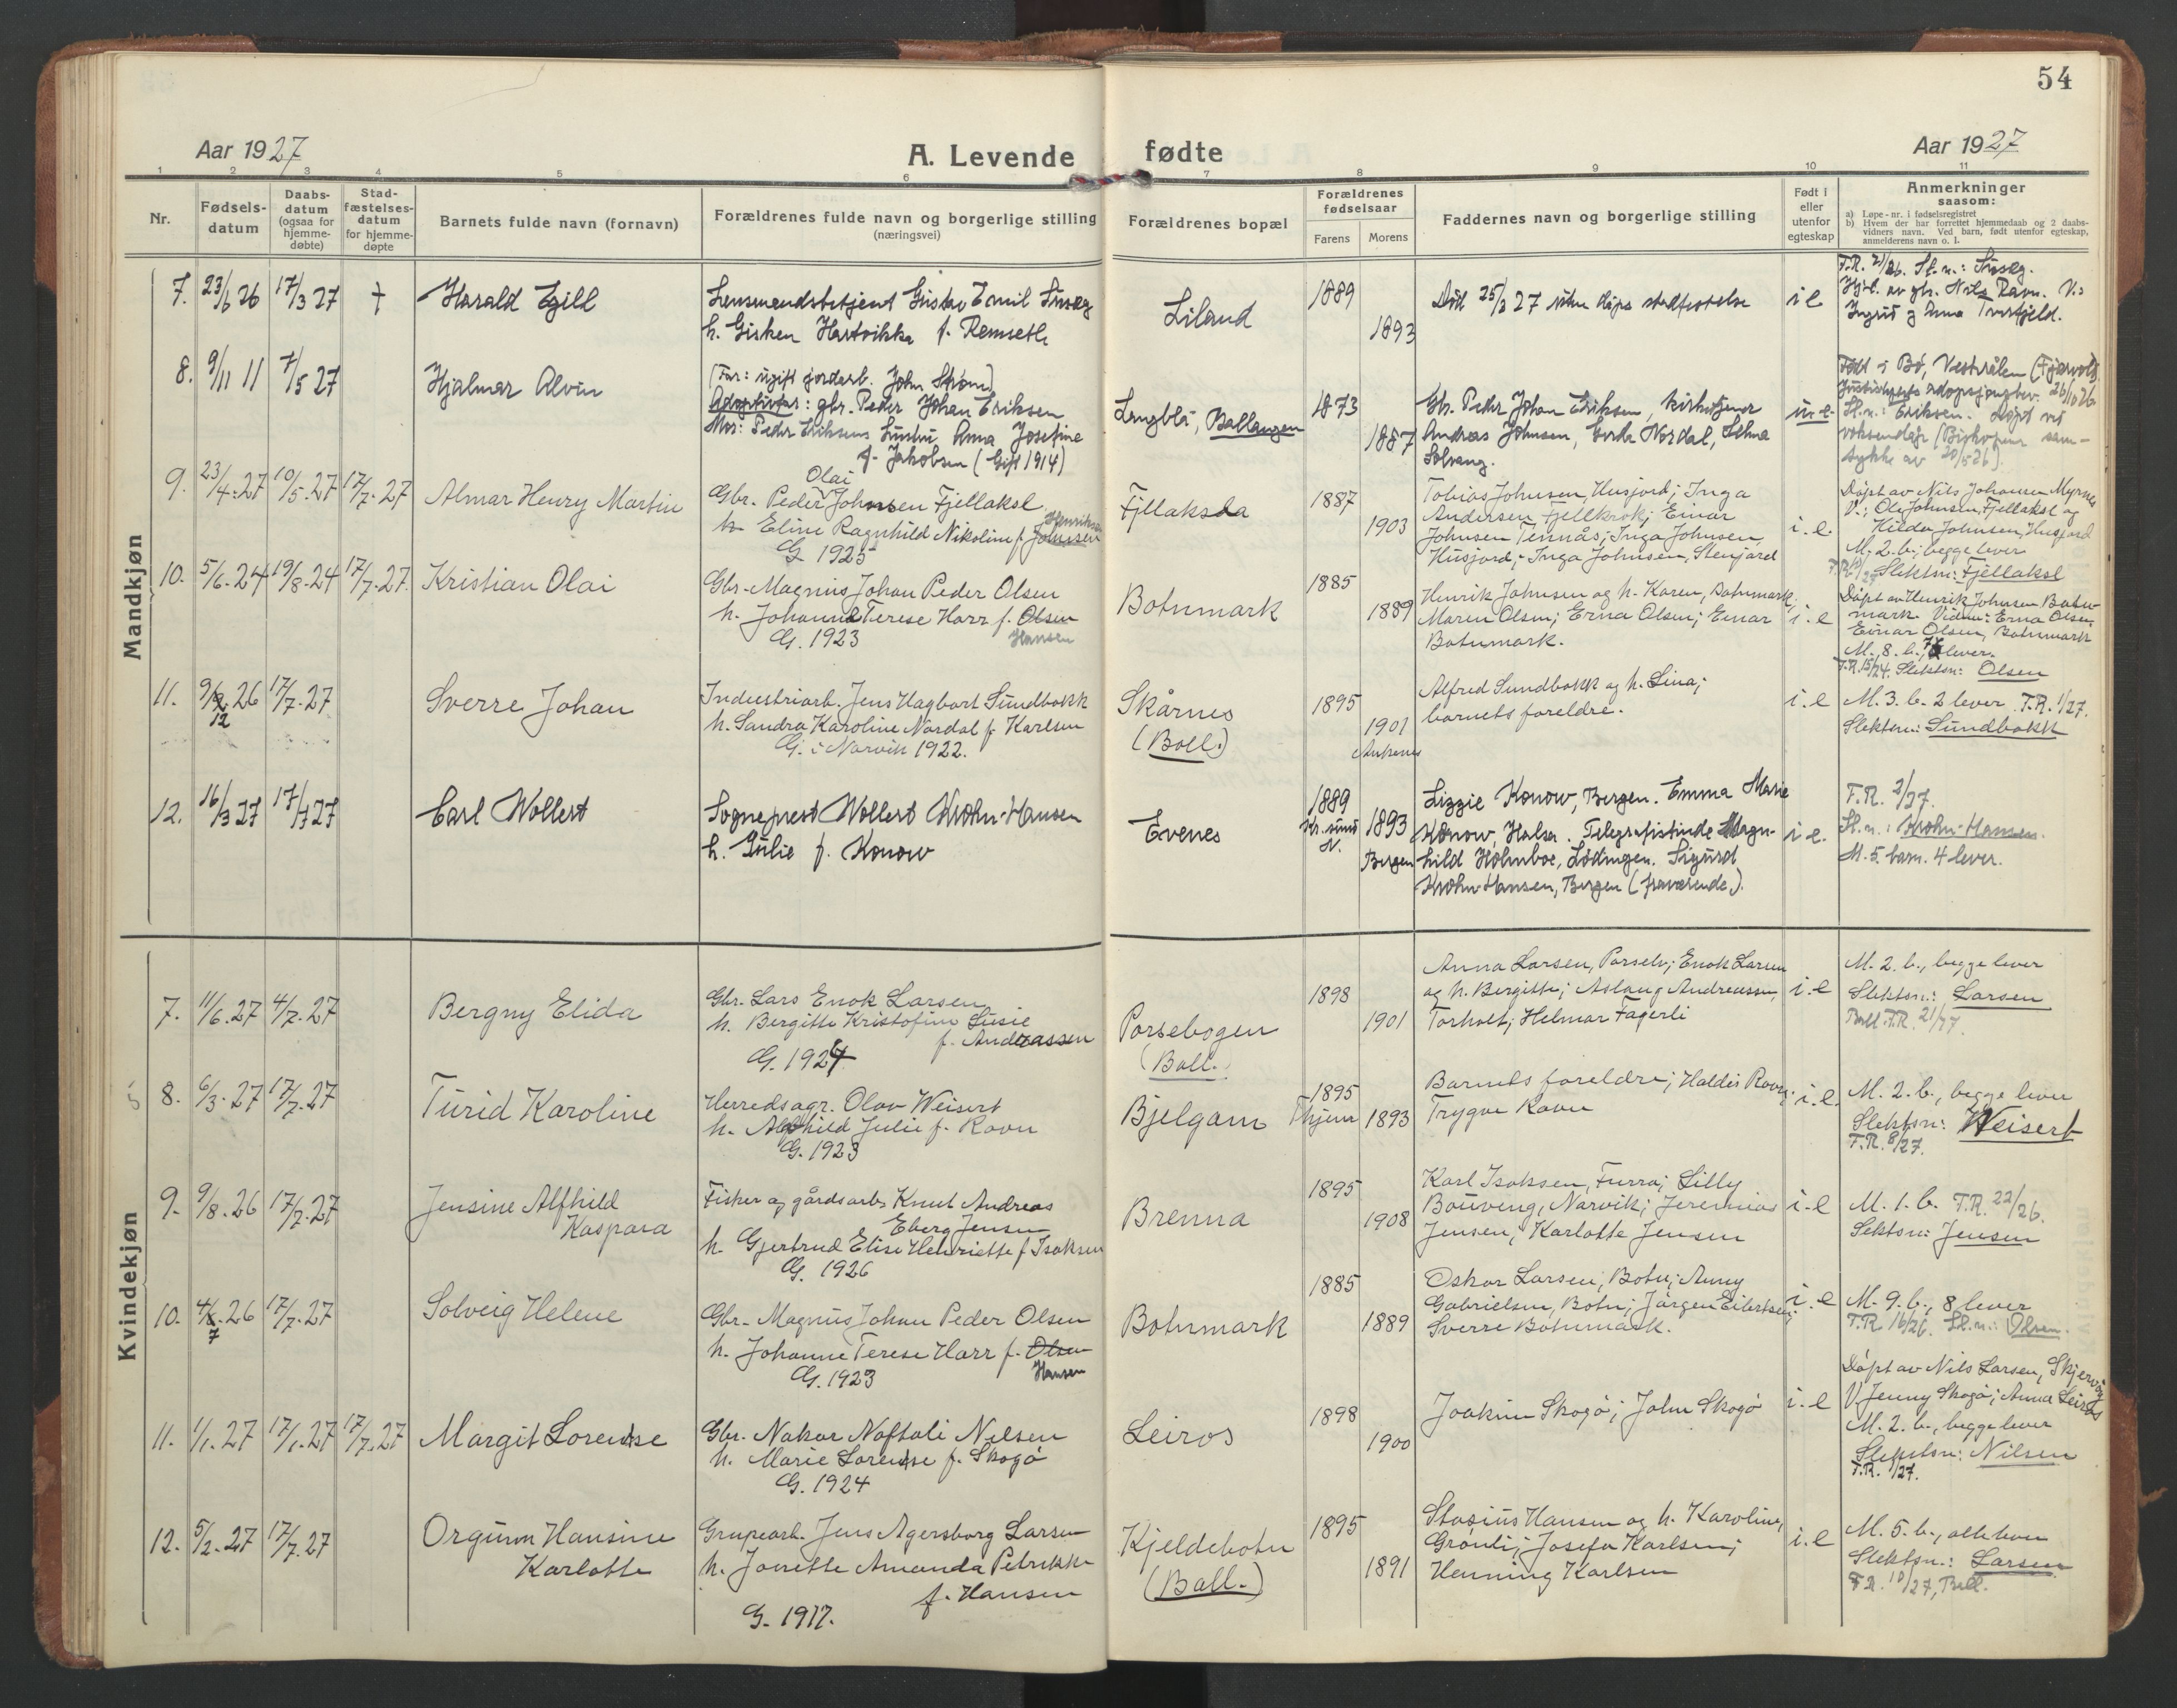 54
Aar 1927
A. Levende
fødte
Aar 1927
1 2 3 4 5 6 7 8 9 10 11
Nr.
Fødsels-
datum
Daabs-
datum
(ogsaa for
hjemme-
døbte)
Stad-
fæstelses-
datum
for hjemme-
døpte
Barnets fulde navn (fornavn)
Forældrenes fulde navn og borgerlige stilling
(næringsvei)
Forældrenes bopæl
Forældrenes
fødselsaar
Farens
Morens
Faddernes navn og borgerlige stilling
Født i
eller
utenfor
egteskap
Anmerkninger
saasom:
a) Løpe-nr. i fødselsregistret
b) Hvem der har forrettet hjemmedaab og 2 daabs-
vidners navn. Ved barn, født utenfor egteskap,
anmelderens navn o. l.
Mandkjøn
7. 23/6 26 17/3 27 † Harald Egill
Lensmandsbetjent Gustav Emil
h. Gisken Hartvikka f. Remseth
Liland
1889
1893
Død 25/3 27 uten dåps stadfestelse
i e
F.R. 21/26. Sl.n.:
Hjd. av gb. Nils Ravn. V.:
Ingrid og Anna Tverfjeld.
8. 9/11 11 7/5 27 Hjalmar Alvin
(Far: ugift jordarb. John Strøm)
Adoptivfar: gbr. Peder Johan Eriksen
Mor: Peder Eriksens hustru Anna Josefine
f. Jakobsen (Gift 1914)
Langblå, Ballangen
1873
1887
Gbr. Peder Johan Eriksen, kirketjener
Andreas Johnsen, Gerda Nordal, Selma
Solvang.
u. e.
Født i Bø, Vesterålen (Fjærvoll)
Justisdepts adopsjonsbev. 26/10 26
Sl.n.: Eriksen. Døpt ved
voksendåp (Biskopens sam-
tykke av 20/5 26).
9. 23/4.27 10/5.27 17/7.27 Almar Henry Martin
Olai
Gbr. Peder Johnsen Fjellaksl
h. Eline Ragnhild Nikoline f. Johnsen
Henriksen
G. 1925
Fjellaksla
1887
1903
Tobias Johnsen, Husjord; Inga
Andersen Fjellkrok; Einar
Johnsen Tennås; Inga Johnsen,
Husjord; Inga Johnsen, Stenjord
i. e.
Døpt av Nils Johansen Myrnes
V.: Ole Johnsen, Fjellaksl og
Hilda Johnsen, Husjord
M. 2. b.; begge lever
Slektsn: Fjellaksl
10. 5/6.24 19/8.24 17/7.27. Kristian Olai
Gbr. Magnus Johan Peder Olsen
h. Johanne Terese Harr f. Olsen
G. 1923
Hansen
Botnmark
1885
1889
Henrik Johnsen og h. Karen, Botnmark,
Maren Olsen; Erna Olsen; Einar
Botnmark.
i. e
Døpt av Henrik Johnsen Botn-
mark. Vidner: Erna Olsen,
Einar Olsen, Botnmark
M. 8. b., 7 lever.
F.R. 15/24. Slektsn: Olsen
11. 9/12 26 17/7.27 Sverre Johan
Industriarb. Jens Hagbart Sundbakk
h. Sandra Karoline Nordal f. Karlsen
G. i Narvik 1922.
Skårnes
(Ball.)
1895
1901
Ankenes
Alfred Sundbakk og h. Lina;
barnets foreldre.
i. e
M. 3. b. 2 lever F.R. 1/27.
Slektsn: Sundbakk
12. 16/3 27 17/7 27 Carl Wollert
Sogneprest Wollert Krohn-Hansen
h. Julie f. Konow
Evenes
1889
Kr.sund
N.
1893
Bergen
Lizzie Konow, Bergen. Emma Marie
Konow, Halsa. Telegrafistinde Magn-
hild Holmboe, Lødingen. Sigurd
Krohn-Hansen, Bergen (fraværende).
i e.
F.R. 2/27.
Sl.n.: Krohn-Hansen.
M. 5. barn. 4 lever.
Kvindekjøn
7. 11/6.27 4/7.27 Bergny Elida
Gbr. Lars Enok Larsen
h. Bergitte Kristofine Susie
f. Andreassen
G. 1924
Porsebogen
(Ball.
1898
1901
Anna Larsen, Porselv; Enok Larsen
og h. Bergitte; Aslaug Andreassen,
Torholt; Helmar Fagerli
i. e
M. 2. b., begge lever
Slektsn.: Larsen
Ball F.R. 21/27.
8. 6/3.27 17/7.27 Turid Karoline
Herredsagr. Olav Weisert
h. Alfhild Julie f. Ravn
G. 1923
Bjelgam
1895
Thjem
1893
Barnets foreldre; Haldis Ravn;
Trygve Ravn
i. e.
M. 2. b., begge lever
Slektsn: Weisert
F.R. 8/27.
9. 9/8.26 17/7.27 Jensine Alfhild
Kaspara
Fisker og gårdsarb. Knut Andreas
Eberg Jensen
h. Gjertrud Elise Henriette f. Isaksen
G. 1926
Brenna
1895
1908
Karl Isaksen, Furra; Lilly
Bouveng, Narvik; Jeremias
Jensen; Karlotte Jensen
i. e
M. 1. b. F.R. 22/26.
Sektsn: Jensen
10. 4/7.26 17/7.27 Solveig Helene
Gbr. Magnus Johan Peder Olsen
h. Johanne Terese Harr f. Olsen
G. 1923
Hansen
Botnmark
1885
1889
Oskar Larsen, Botn; Anny
Gabrielsen, Botn; Jørgen Eilertsen;
Sverre Botnmark.
i. e
M. 9. b., 8 lever
F.R. 16/26. Sl.n.: Olsen.
11. 1/1.27 17/1.27 17/7.27 Margit Lorentse
Gbr. Nakar Naftali Nilsen
h. Marie Lorentse f. Skogø
G. 1924
Leiros
1898
1900
Joakim Skogø; John Skogø
i. e
Døpt av Nils Larsen, Skjervøy
V. Jenny Skogø; Anna Leiros
M. 2. b., begge lever
Slektsn: Nilsen
F.R. 1/27.
12. 5/2.27 17/7.27 Orgunn Hansine
Karlotte
Grupearb. Jens Agersborg Larsen
h. Jonette Amanda Petrikke
f. Hansen
G. 1917.
Kjeldebotn
(Ball.)
1895
1891
Stasius Hansen og h. Karoline,
Grønli; Josefa Karlsen;
Henning Karlsen
i. e
M. 5. b., alle lever
Slektsn.: Larsen
F.R. 10/27, Ball.